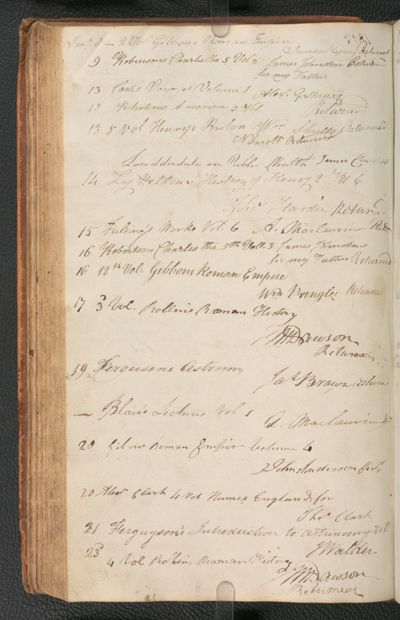 9 — 2 Vol Gibbons Roman Empire
Returned
9 Robinsons Charles the 5 Vol 2 James Johnston Returned
for my Father
13 Cooks Voyages Volume 1 Alexr
13 Robertsons America 2 Vol Returned
13 5 Vol Henrys Britan Wm Returned
Returned
on Public James
14 Lyttelton History of Henry 2nd Vol 6
Hardie Returned
15 Fieldings Works Vol. 6 A. Maclaurin
16 Robertsons Charles the 5th Voll. 3 James Johnston
for my Father Returned
16 12th Vol: Gibbons Roman Empire
Wm Pringle Returned
17 3 Vol. Rollins Roman History
Dawson
Returned
19 Fergusons Astronomy
Jas Brown Return
— Blairs Lectures Vol 1
A. Maclaurin
20 Roman Empire Volume 4
John Anderson
20 Alexr Clark 4 Vol Humes England for
Thos Clark
21 Fergusons Introduction to Astronomy
J Walker
23 4 Vol Rollins Roman History
Dawson
Returned